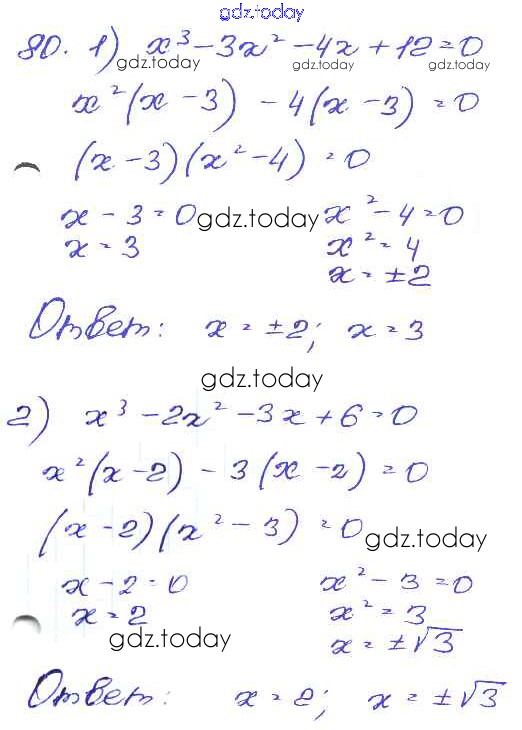 gdz.today
80. 1) x³ - 3x² - 4x + 12 = 0
gdz.today gdz.today gdz.today
x²(x - 3) - 4(x - 3) = 0
(x - 3)(x² - 4) = 0
x - 3 = 0 gdz.today x² - 4 = 0
x = 3 x² = 4
x = ±2
Ответ: x = ±2; x = 3
gdz.today
2) x³ - 2x² - 3x + 6 = 0
x²(x - 2) - 3(x - 2) = 0
(x - 2)(x² - 3) = 0 gdz.today
x - 2 = 0 x² - 3 = 0
x = 2 x² = 3
gdz.today x = ±√3
Ответ: x = 2; x = ±√3